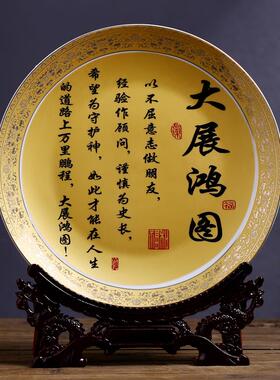 大展鸿图
以不屈意志做朋友，
经验作顾问，谨慎为史长，
希望为守护神，如此才能在人生
的道路上万里鹏程，大展鸿图！